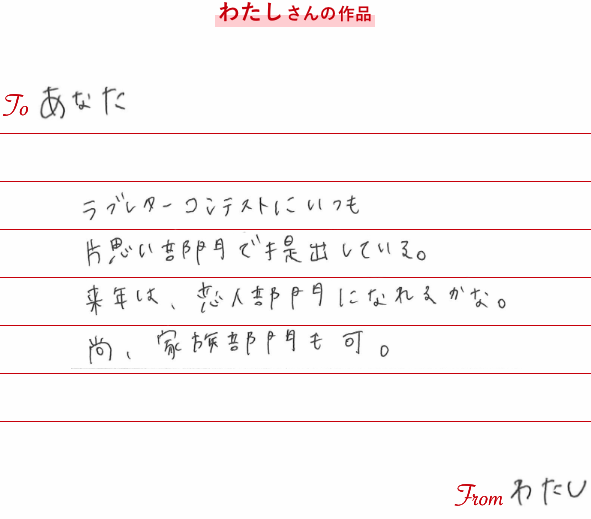 わたしさんの作品
To あなた
ラブレターコンテストにいつも
片思い部門で提出している。
来年は、恋人部門になれるかな。
尚、家族部門も可。
From わたし